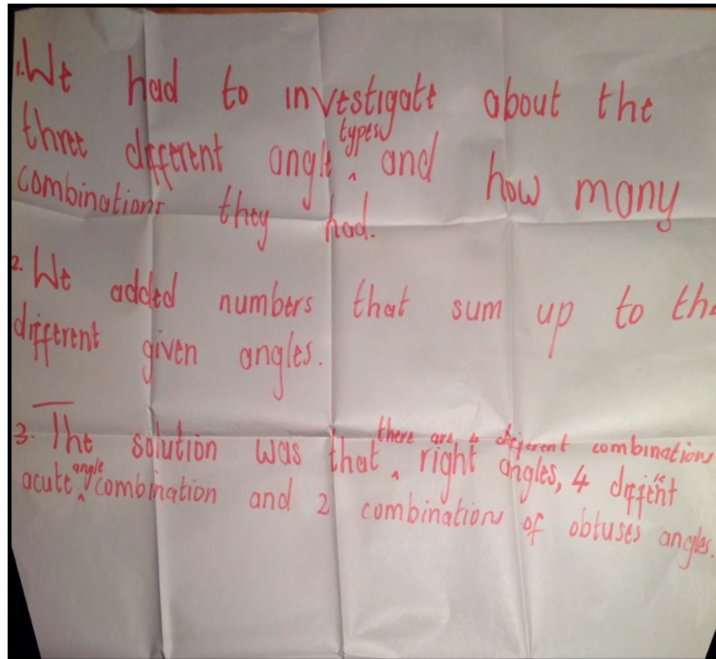 1. We had to investigate about the
three different angle types and how many
combinations they had.
2. We added numbers that sum up to the
different given angles.
3. The solution was that there are 4 different combinations right angles, 4 diffent
acute angle combination and 2 combinations of obtuses angles.